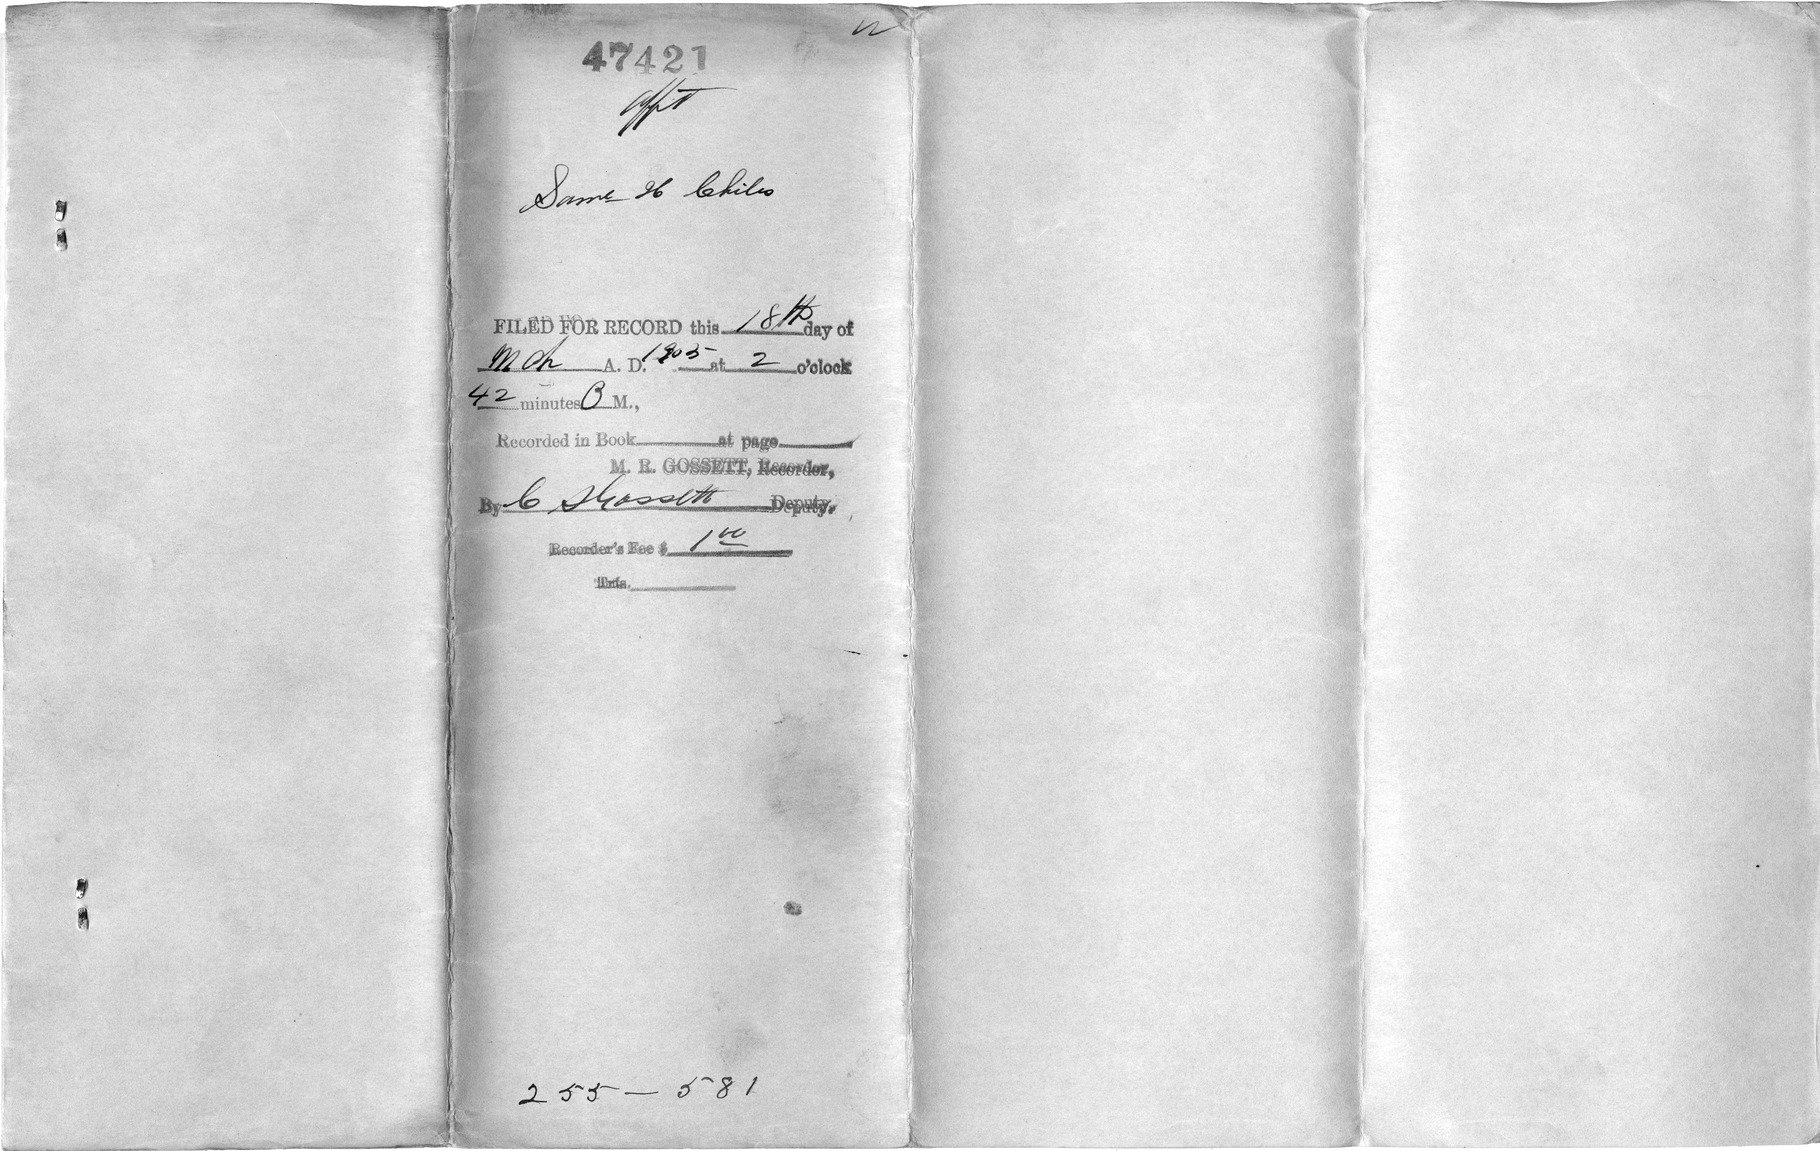 47421
Afft
Sam'l H Chiles
FILED FOR RECORD this 18th day of
Mch A. D. 1905 at 2 o'clock
42 minutes P M.,
Recorded in Book at page
M. R. GOSSETT, Recorder,
By C S Gossett Deputy.
Recorder's Fee $ 1 00
255 - 581